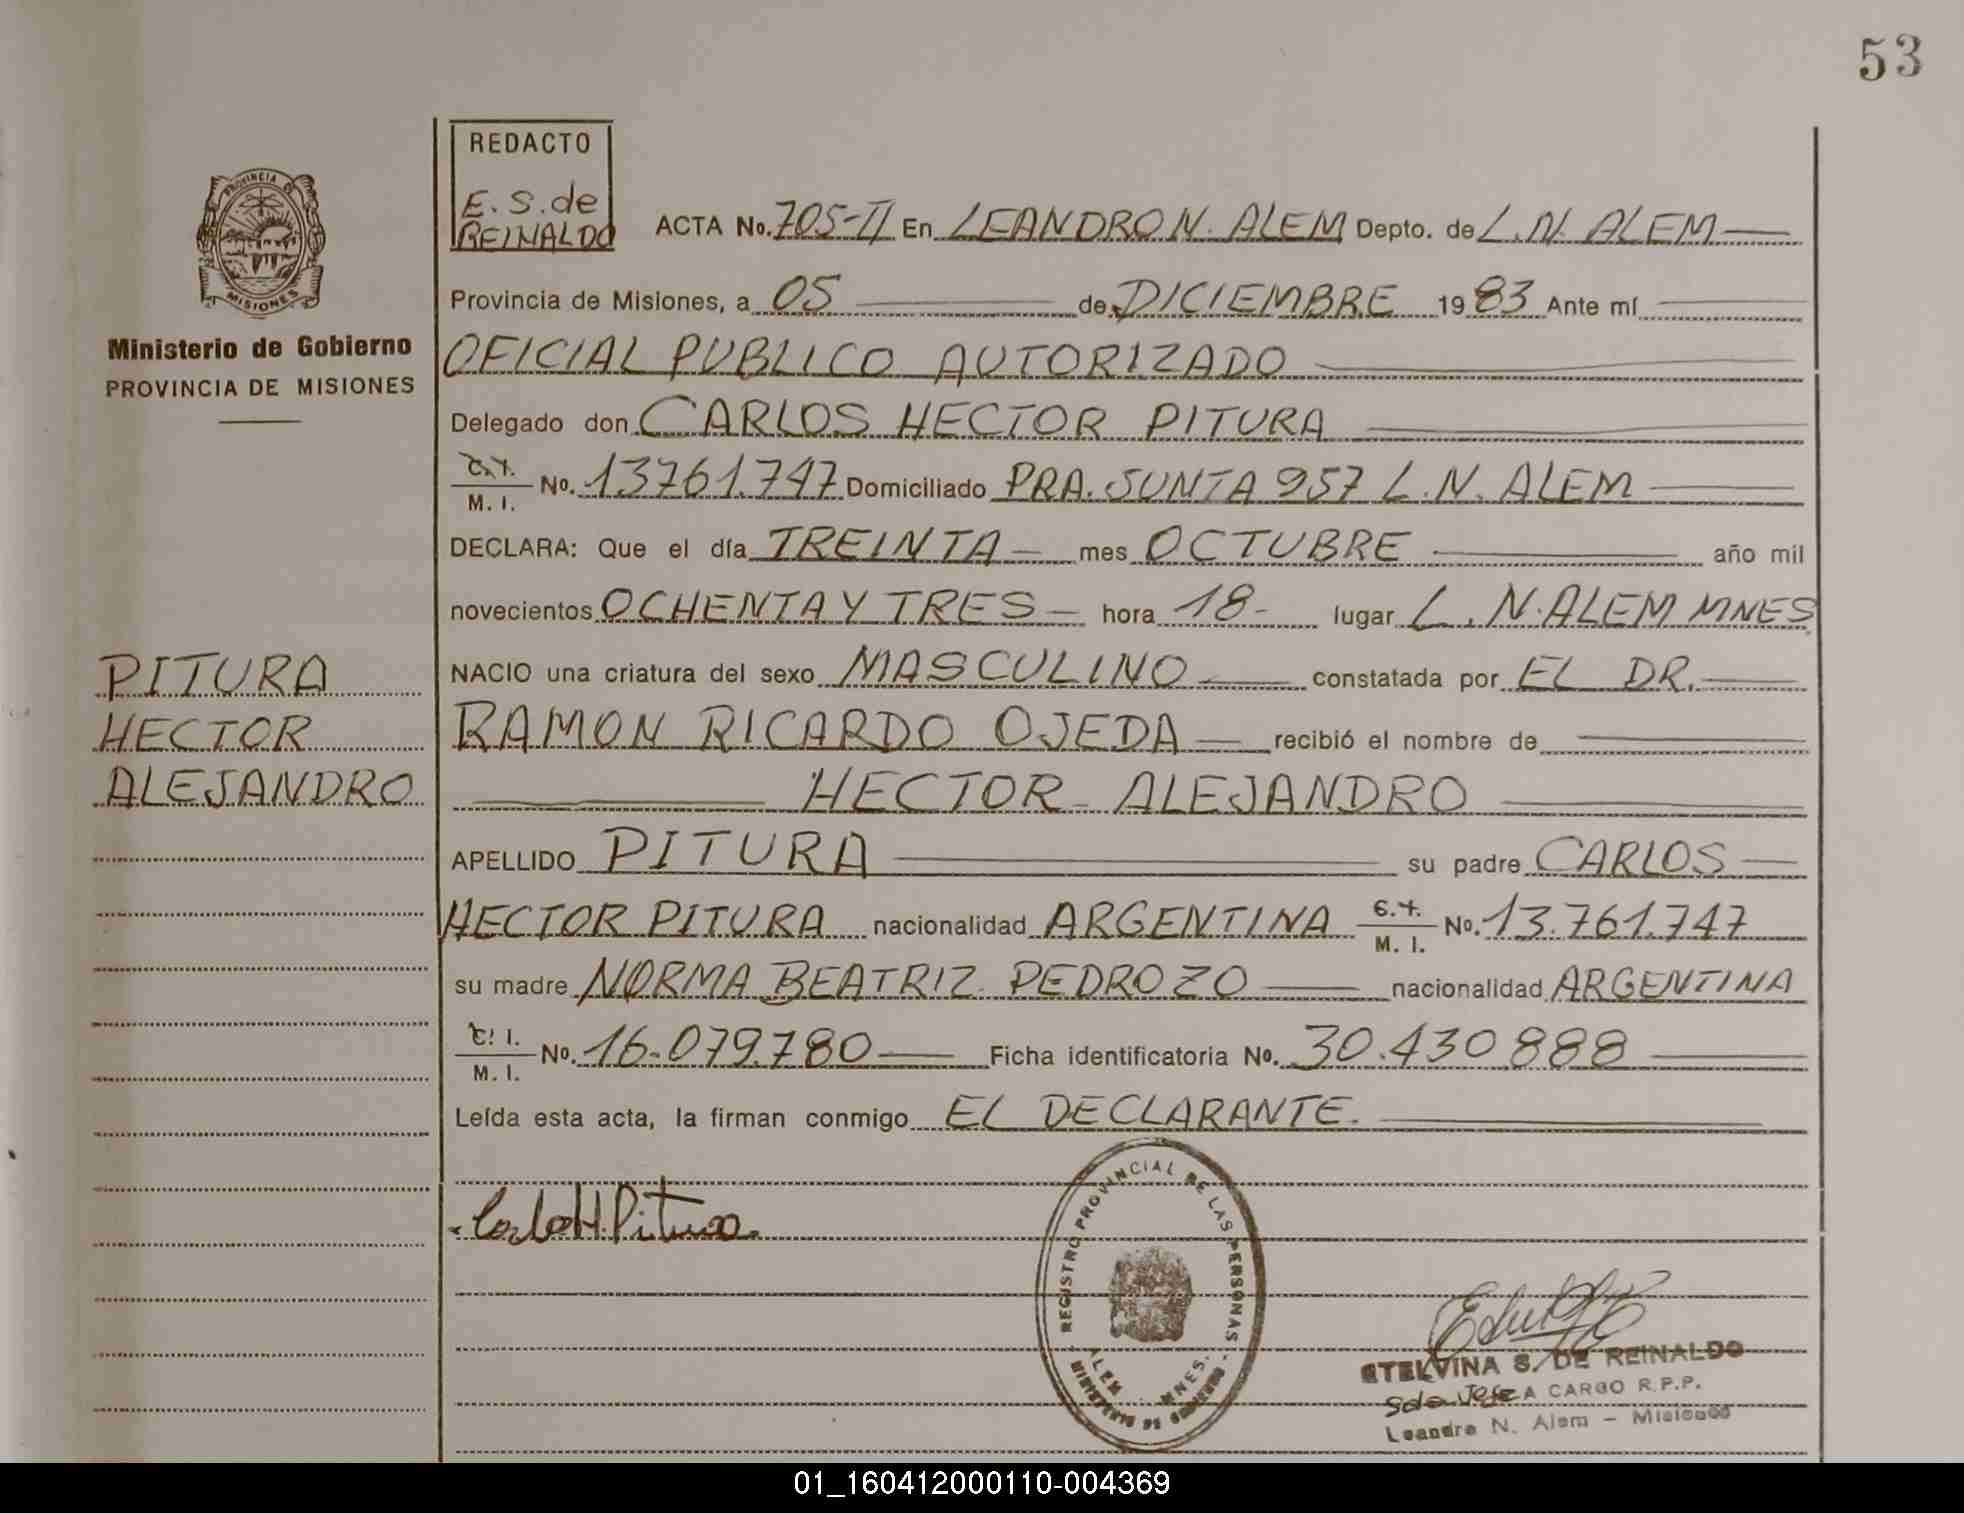 53
REDACTO
E. S. de
REINALDO
PROVINCIA DE
MISIONES
Ministerio de Gobierno
PROVINCIA DE MISIONES
ACTA No. 705-II En LEANDRO N. ALEM Depto. de L.N. ALEM
Provincia de Misiones, a 05 de DICIEMBRE 1983 Ante mí
OFICIAL PUBLICO AUTORIZADO
Delegado don CARLOS HECTOR PITURA
C.I. M. I. No. 13761.747 Domiciliado PRA. JUNTA 957 L.N. ALEM
DECLARA: Que el día TREINTA mes OCTUBRE año mil
novecientos OCHENTA Y TRES hora 18- lugar L. N. ALEM MNES
NACIO una criatura del sexo MASCULINO constatada por EL DR.
RAMON RICARDO OJEDA recibió el nombre de
HECTOR ALEJANDRO
APELLIDO PITURA su padre CARLOS
HECTOR PITURA nacionalidad ARGENTINA C.I. M. I. No. 13.761.747
su madre NORMA BEATRIZ PEDROZO nacionalidad ARGENTINA
C. I. M. I. No. 16.079.780 Ficha identificatoria No. 30.430.888
Leída esta acta, la firman conmigo EL DECLARANTE.
PITURA
HECTOR
ALEJANDRO
Carlos H. Pitura
REGISTRO PROVINCIAL DE LAS PERSONAS
ALEM MNES.
MINISTERIO DE GOBIERNO
ETELVINA S. DE REINALDO
A CARGO R.P.P.
Leandro N. Alem - Misiones
01_160412000110-004369